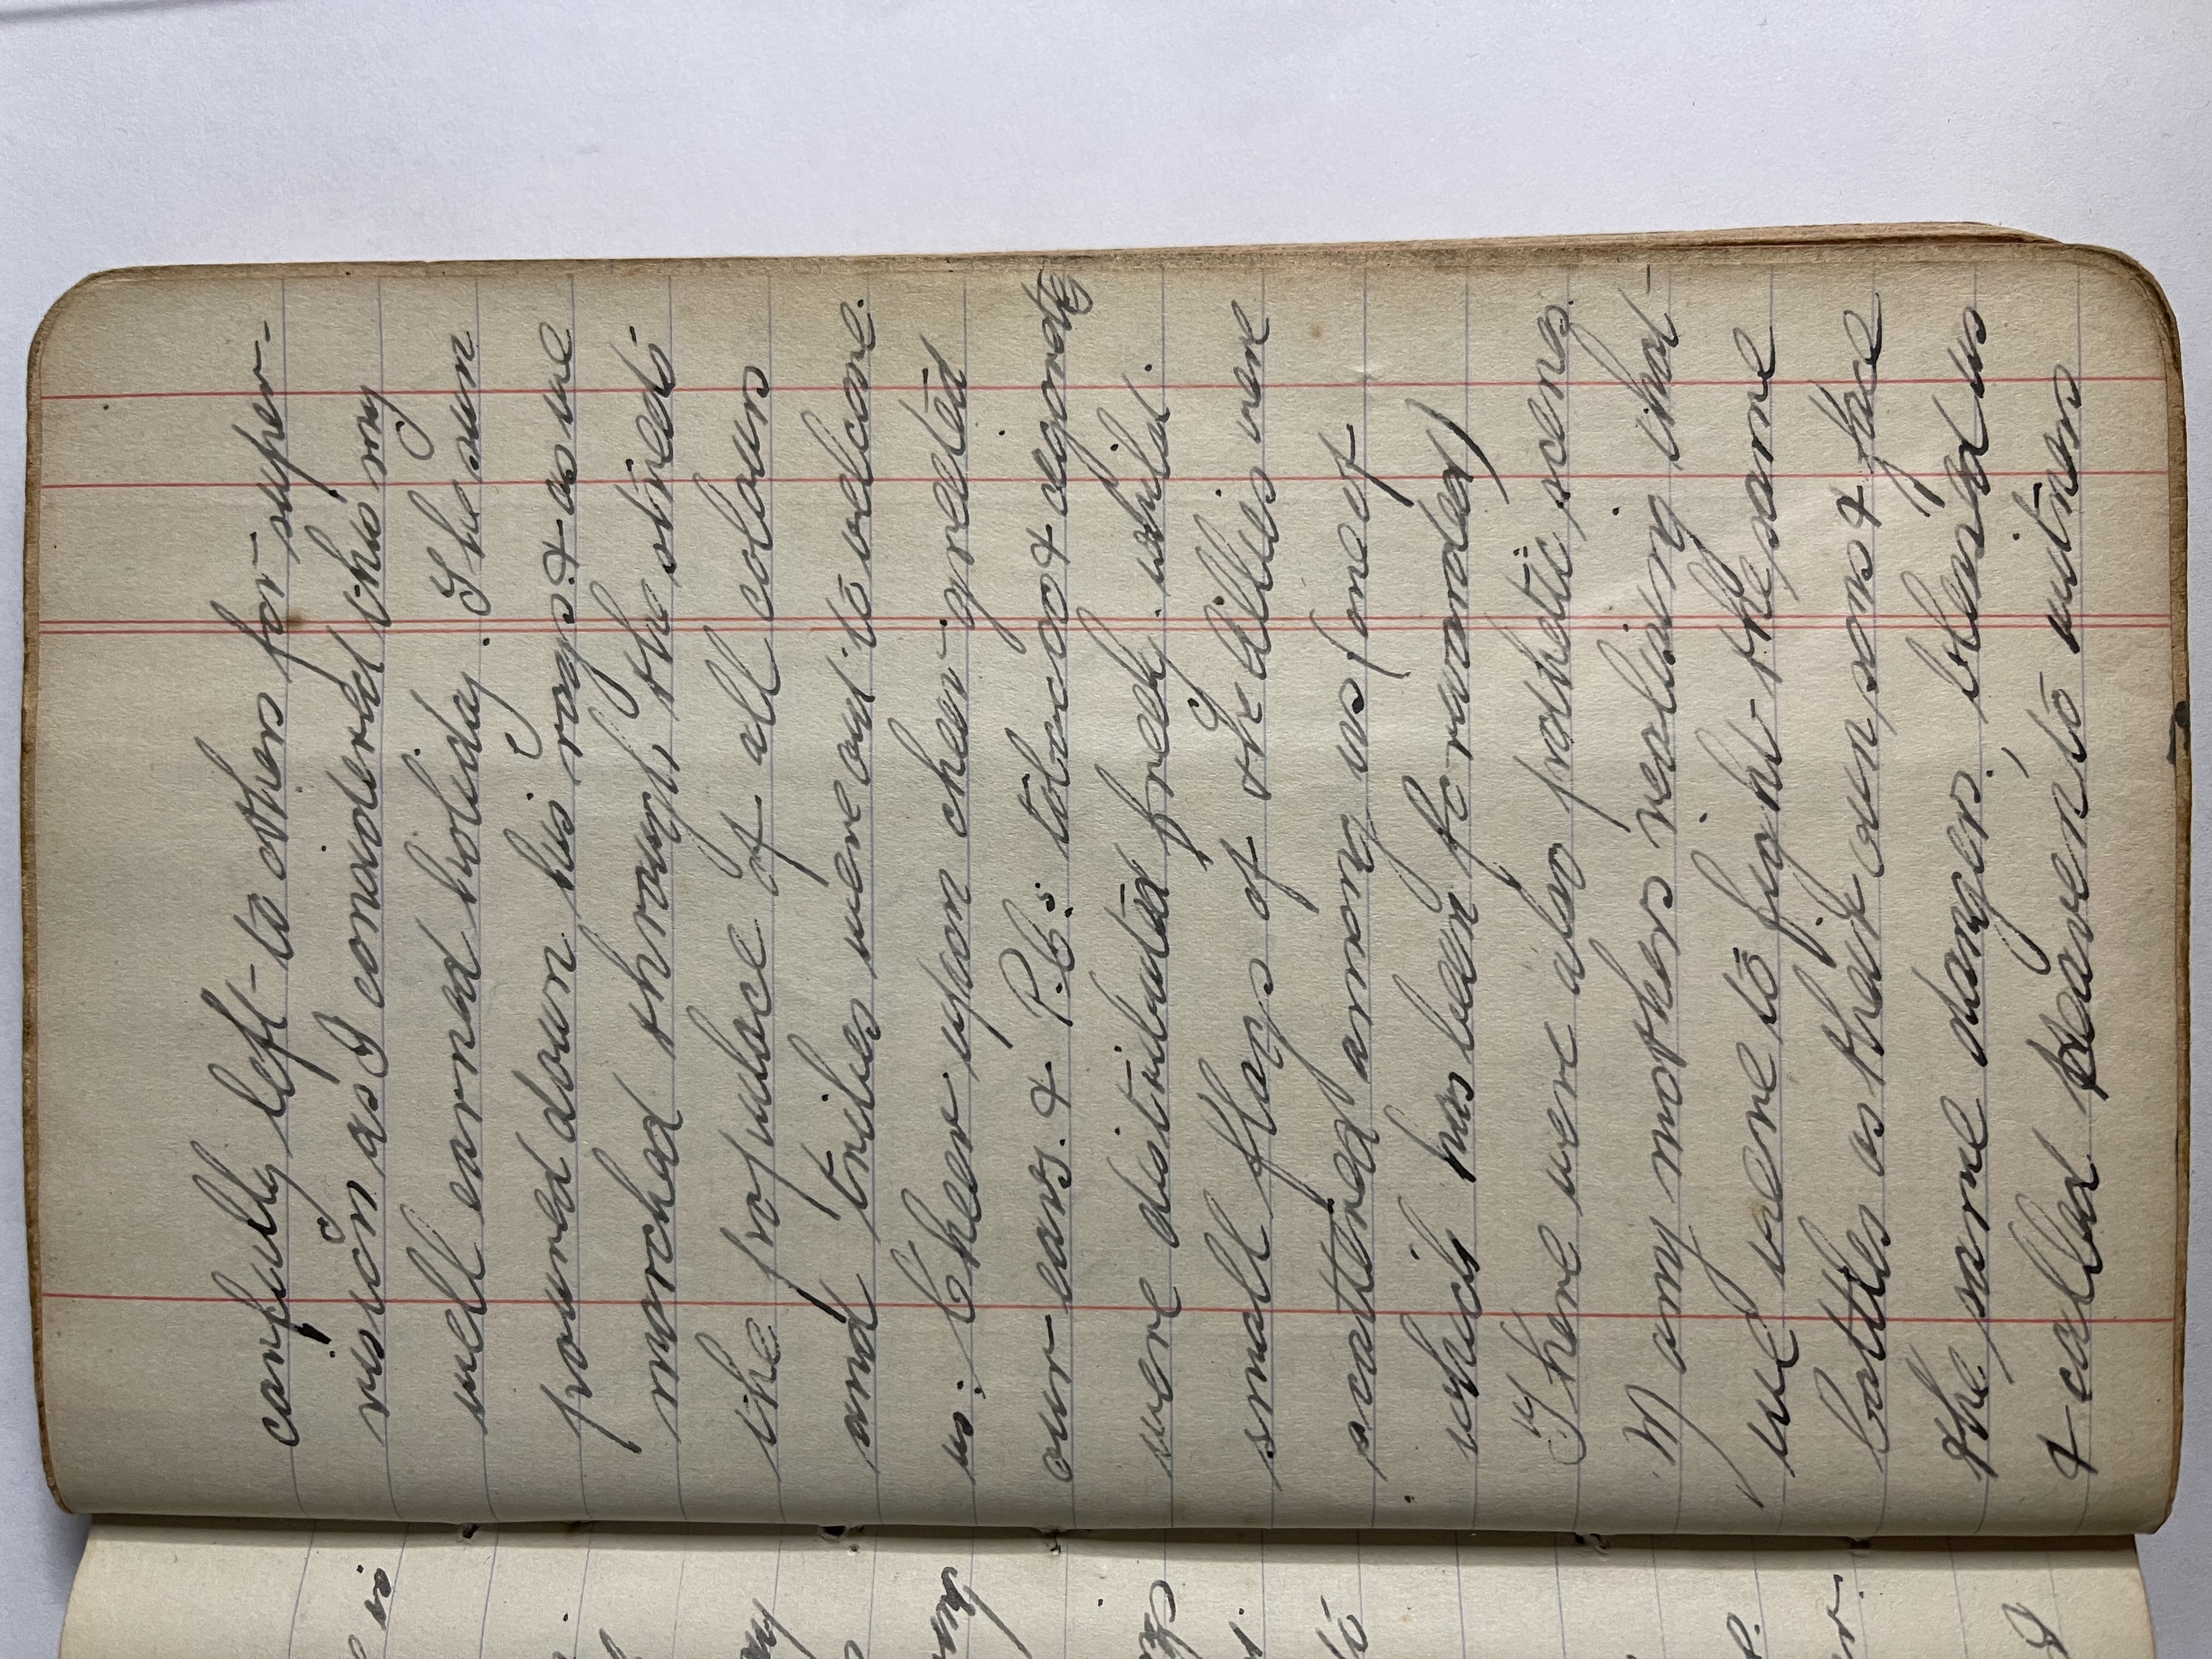 carfully left to others for super-
vision as I considered this my
well earned holiday. The sun
poured down his rays. & as we
marched through the streets
the populace of all colours
and tribes were out to welcome
us. Cheer upon cheer greeted
our ears. & P.C's. tobacco & cigarettes
were distributed freely. whilst
small flags of the allies were
scattered among us (one of
which has been forwarded)
There were also pathetic scenes.
Many mothers realising that
we were to fight the same
battles as their own sons & face
the same dangers, blessed us
& called heaven to witness